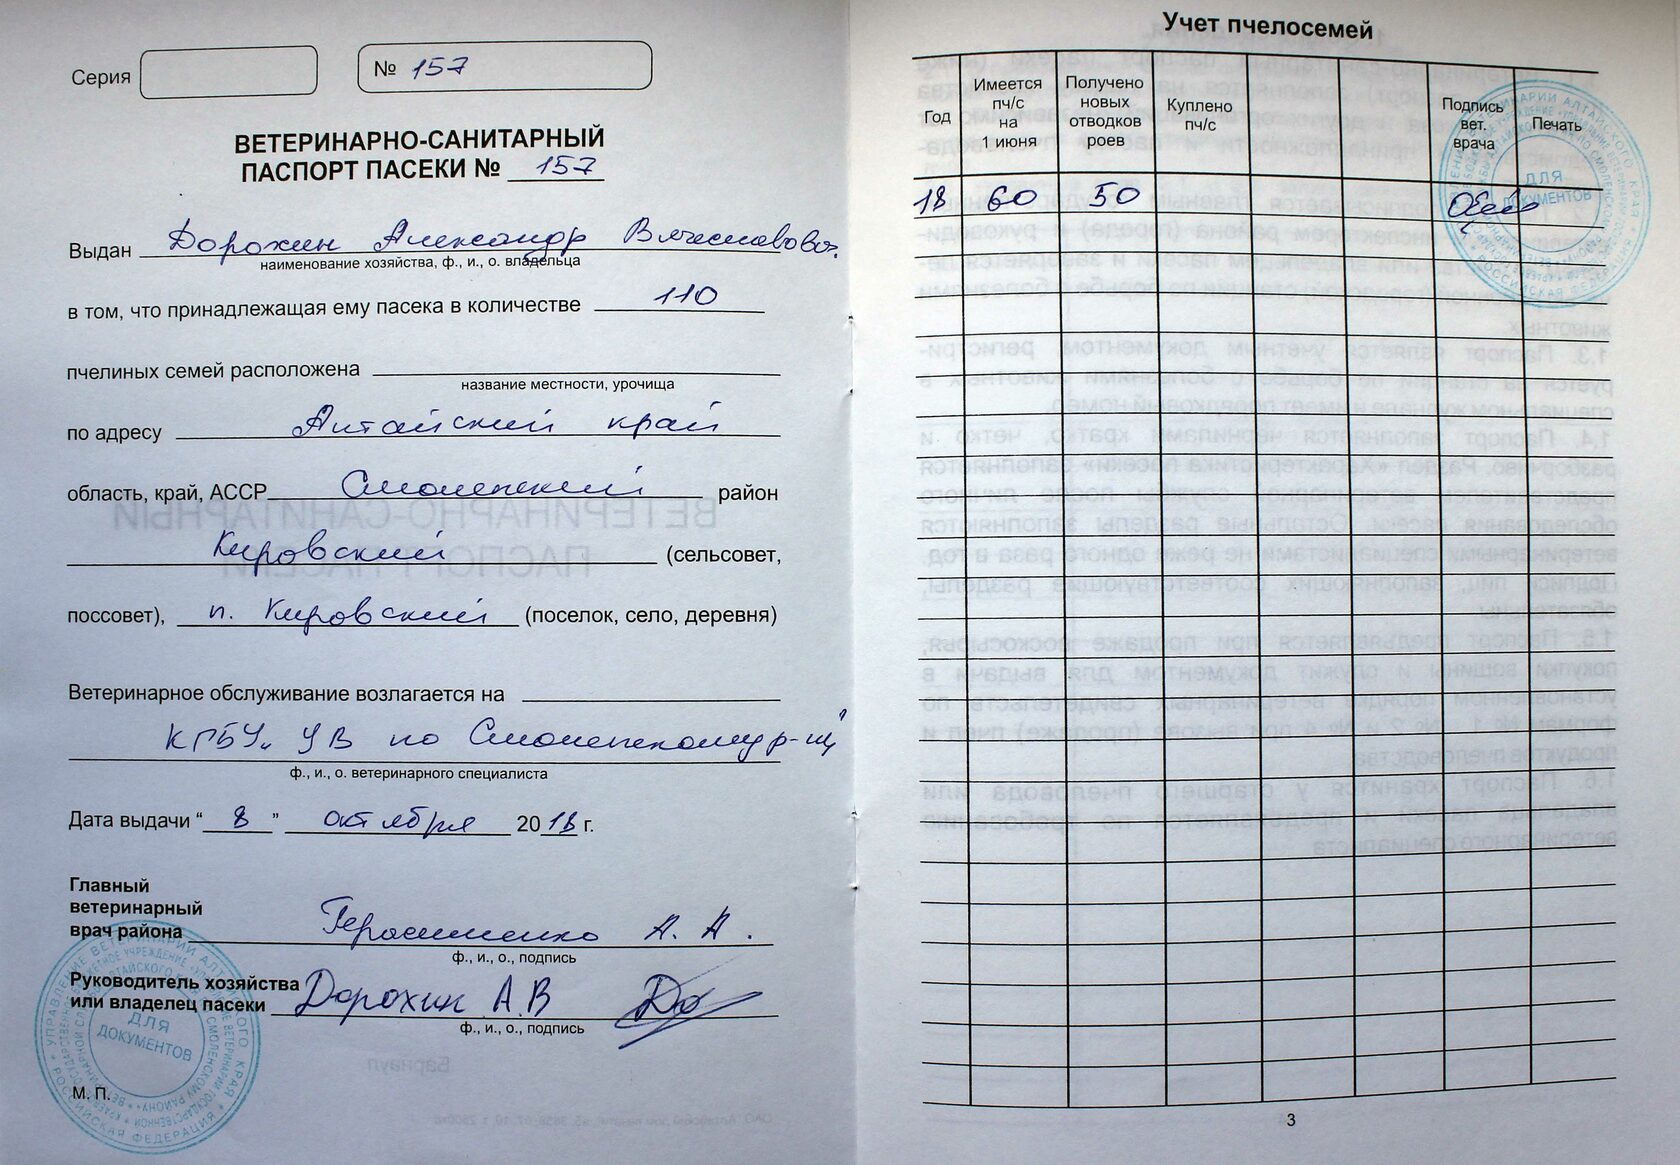 Серия
№ 157
ВЕТЕРИНАРНО-САНИТАРНЫЙ
ПАСПОРТ ПАСЕКИ № 157
Выдан Дорохин Александр Вячеславович
наименование хозяйства, ф., и., о. владельца
в том, что принадлежащая ему пасека в количестве 110
пчелиных семей расположена
название местности, урочища
по адресу Алтайский край
область, край, АССР Смоленский район
Кировский (сельсовет,
поссовет), п. Кировский (поселок, село, деревня)
Ветеринарное обслуживание возлагается на
КГБУ УВ по Смоленскому р-ну
ф., и., о. ветеринарного специалиста
Дата выдачи “ 8 ” октября 2018 г.
Главный
ветеринарный
врач района Герасименко А. А.
ф., и., о., подпись
Руководитель хозяйства
или владелец пасеки Дорохин А.В
ф., и., о., подпись
ДЛЯ
ДОКУМЕНТОВ
М. П.
Учет пчелосемей
Год
Имеется
пч/с
на
1 июня
Получено
новых
отводков
роев
Куплено
пч/с
Подпись
вет.
врача
Печать
18 60 50
ДЛЯ
ДОКУМЕНТОВ
3